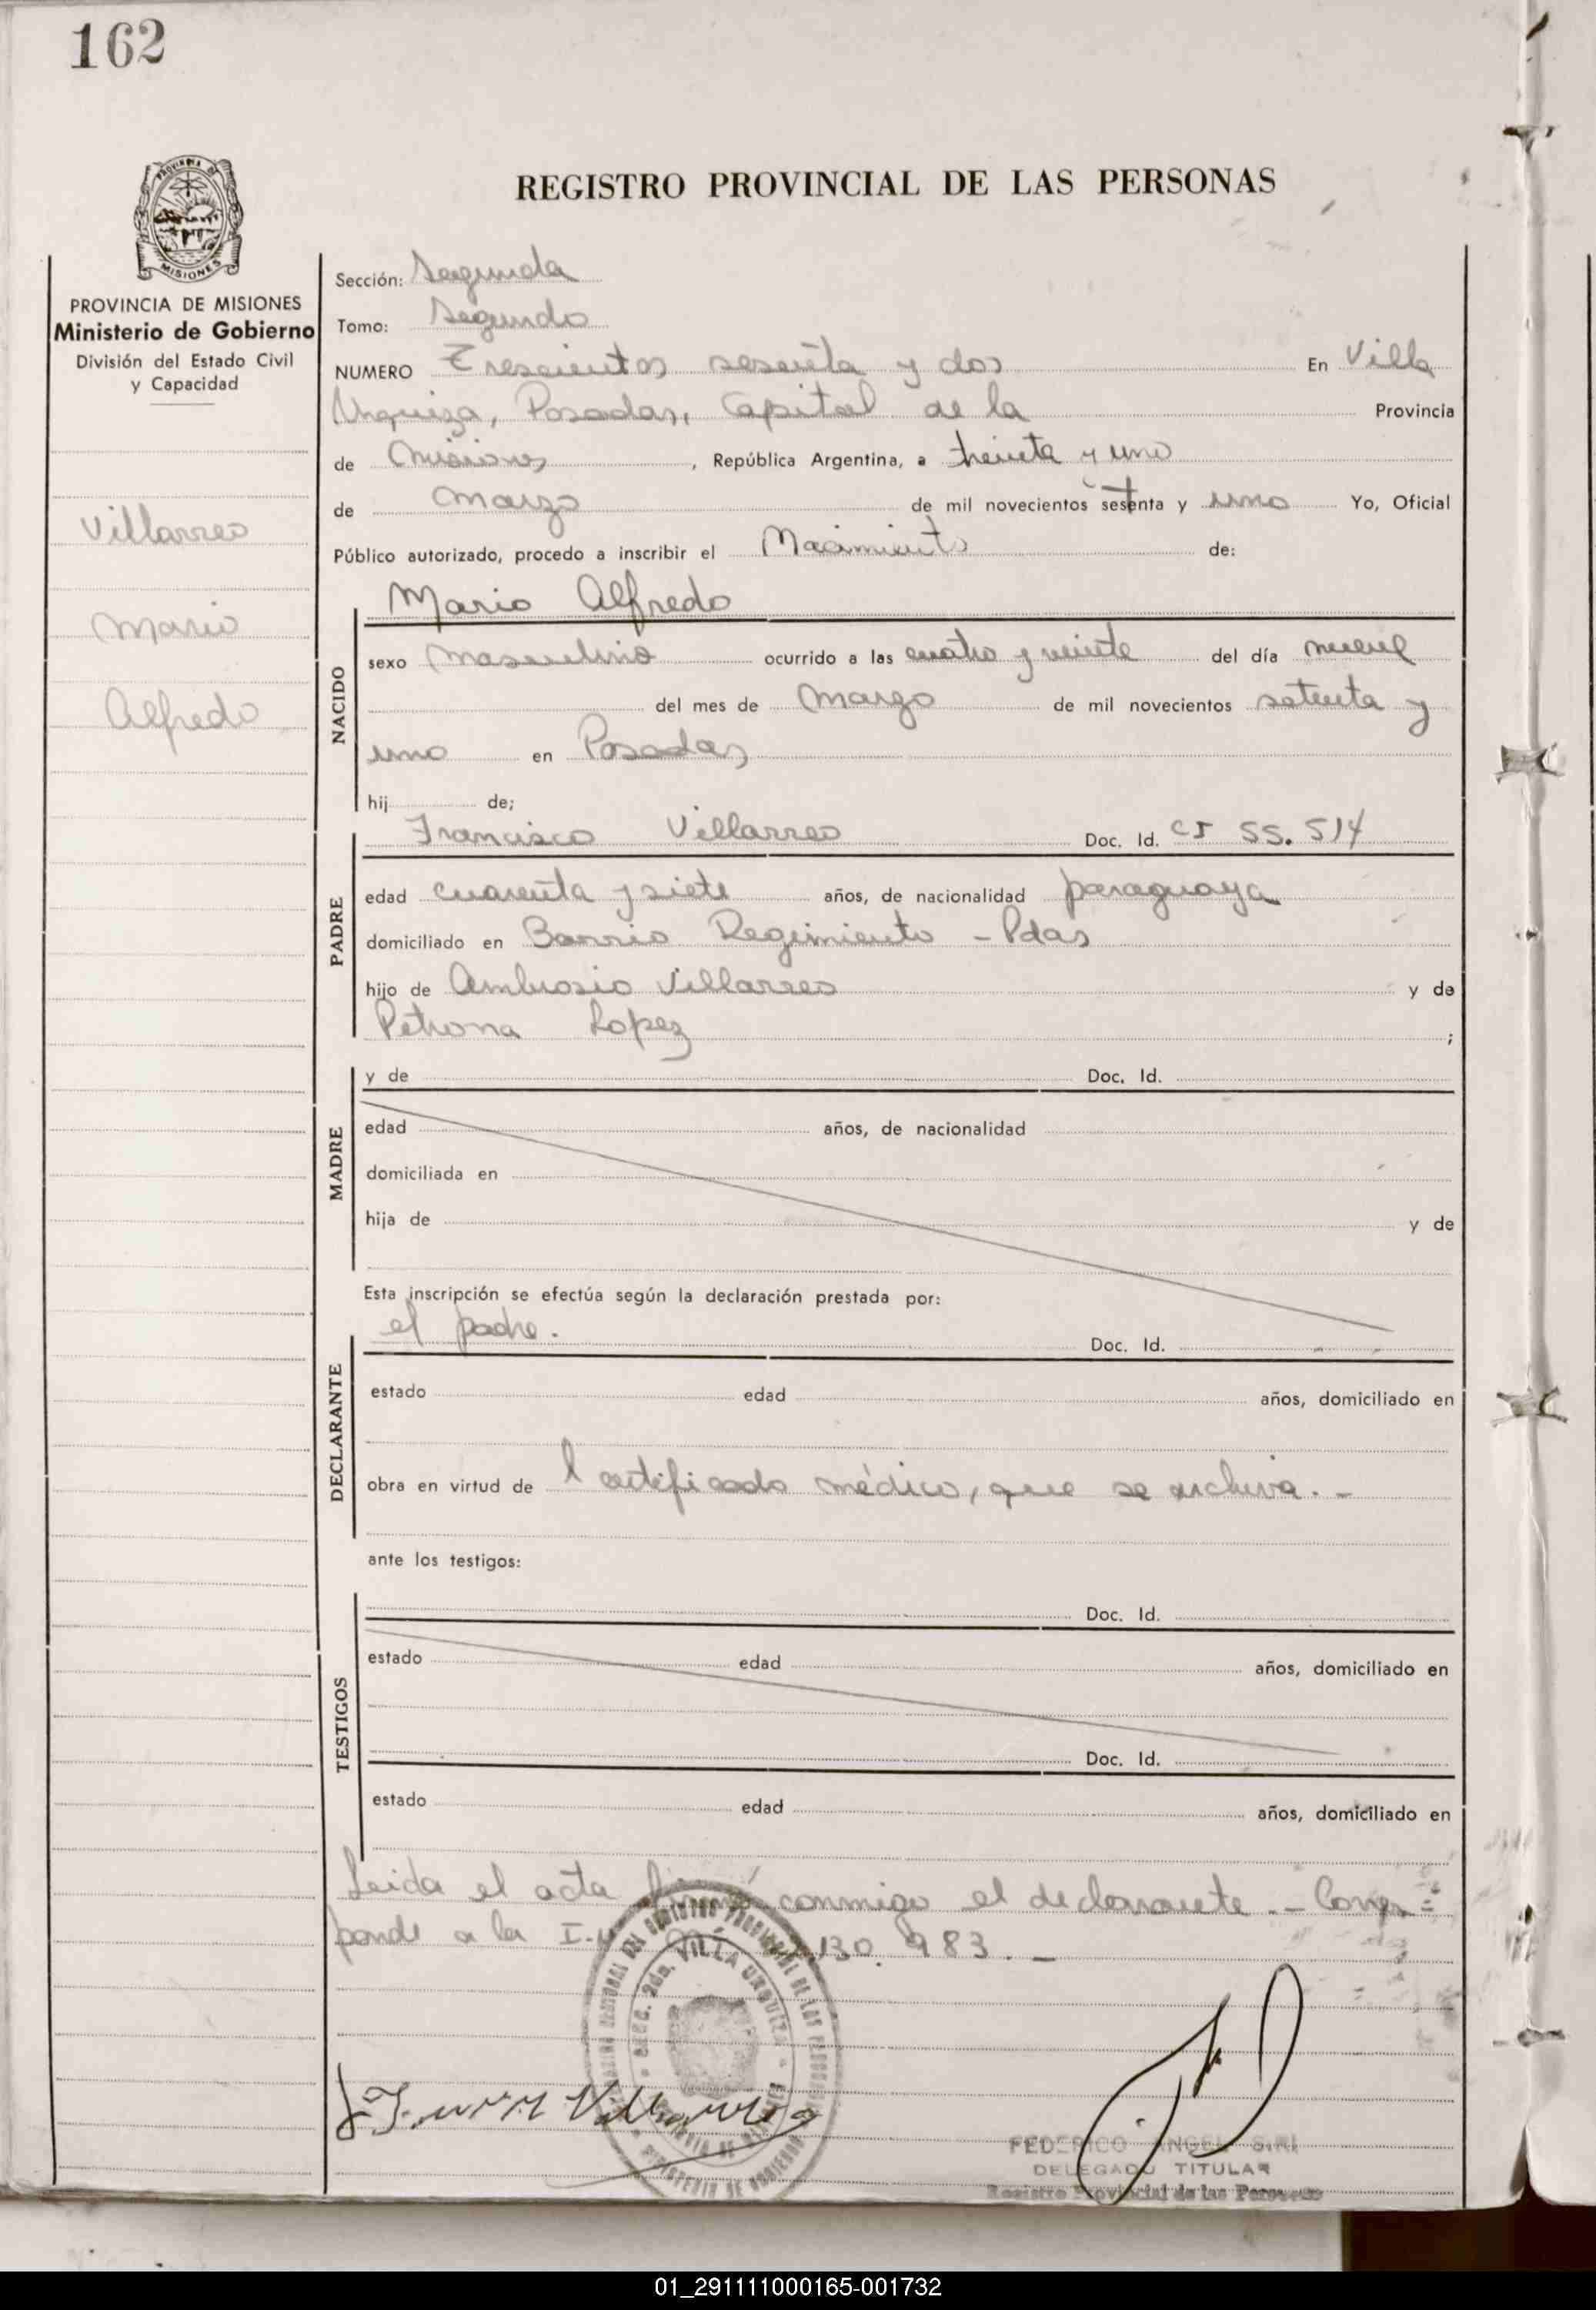 162
PROVINCIA DE
MISIONES
PROVINCIA DE MISIONES
Ministerio de Gobierno
División del Estado Civil
y Capacidad
Villarreo
Mario
Alfredo
REGISTRO PROVINCIAL DE LAS PERSONAS
Sección: Segunda
Tomo: Segundo
NUMERO Trescientos sesenta y dos En Villa
Urquiza, Posadas, Capital de la Provincia
de Misiones, República Argentina, a treinta y uno
de Marzo de mil novecientos setenta y uno Yo, Oficial
Público autorizado, procedo a inscribir el Nacimiento de:
Mario Alfredo
NACIDO
sexo masculino ocurrido a las cuatro y veinte del día nueve
del mes de Marzo de mil novecientos setenta y
uno en Posadas
hij de;
Francisco Villarreo Doc. Id. CI 55.514
PADRE
edad cuarenta y siete años, de nacionalidad paraguaya
domiciliado en Barrio Regimiento - Pdas
hijo de Ambrosio Villarreo y de
Petrona Lopez ;
y de Doc. Id.
MADRE
edad años, de nacionalidad
domiciliada en
hija de y de
Esta inscripción se efectúa según la declaración prestada por:
el padre. Doc. Id.
DECLARANTE
estado edad años, domiciliado en
obra en virtud de l certificado médico, que se archiva. -
ante los testigos:
Doc. Id.
TESTIGOS
estado edad años, domiciliado en
Doc. Id.
estado edad años, domiciliado en
Leida el acta firmó conmigo el declarante. - Corres=
ponde a la 130.983. -
SECC. 2da. VILLA URQUIZA
MINISTERIO DE GOBIERNO
FEDERICO ANGEL
DELEGADO TITULAR
Registro Provincial de las Personas
01_291111000165-001732